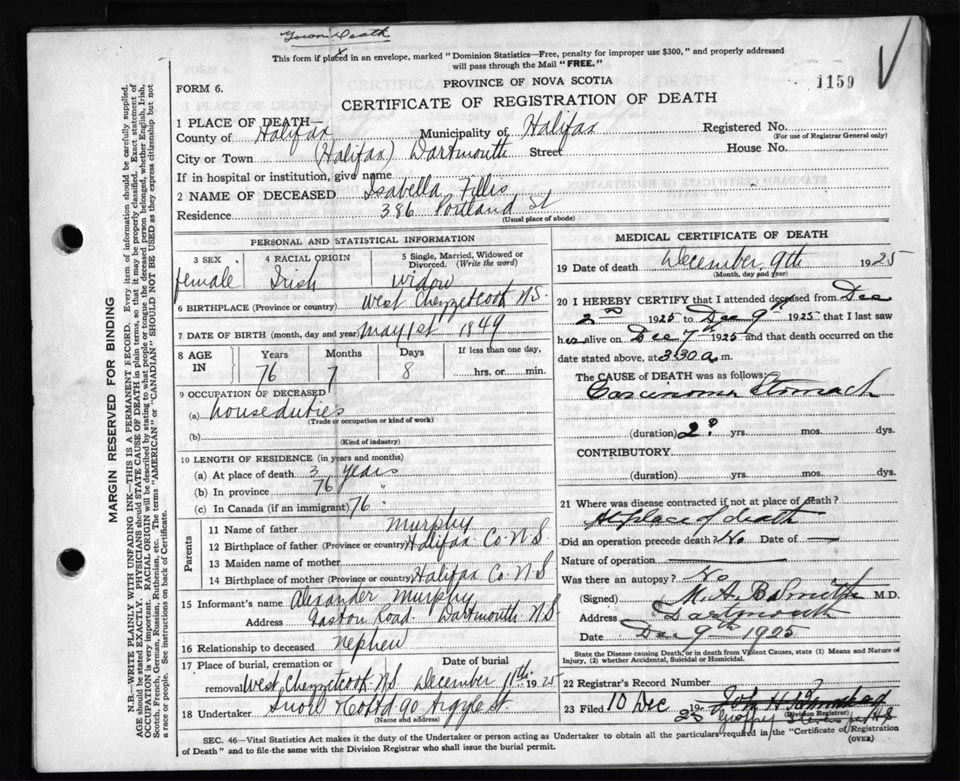 Town Death
This form if placed in an envelope, marked "Dominion Statistics—Free, penalty for improper use $300," and properly addressed
will pass through the Mail "FREE."
1159
PROVINCE OF NOVA SCOTIA
FORM 6.
CERTIFICATE OF REGISTRATION OF DEATH
1 PLACE OF DEATH—
County of Halifax Municipality of Halifax Registered No.
(For use of Registrar General only)
City or Town (Halifax) Dartmouth Street House No.
If in hospital or institution, give name
2 NAME OF DECEASED Isabella Fillis
Residence 386 Portland St
(Usual place of abode)
PERSONAL AND STATISTICAL INFORMATION
3 SEX female
4 RACIAL ORIGIN Irish
5 Single, Married, Widowed or Divorced. (Write the word) widow
6 BIRTHPLACE (Province or country) West Chezzetcook N.S.
7 DATE OF BIRTH (month, day and year) May 1st 1849
8 AGE IN Years 76 Months 7 Days 8 If less than one day, hrs. or min.
9 OCCUPATION OF DECEASED
(a) house duties
(Trade or occupation or kind of work)
(b)
(Kind of industry)
10 LENGTH OF RESIDENCE (in years and months)
(a) At place of death 3 years
(b) In province 76 "
(c) In Canada (if an immigrant) 76
Parents
11 Name of father Murphy
12 Birthplace of father (Province or country) Halifax Co. N S
13 Maiden name of mother
14 Birthplace of mother (Province or country) Halifax Co. N S
15 Informant's name Alexander Murphy
Address Gaston Road Dartmouth N.S
16 Relationship to deceased nephew
17 Place of burial, cremation or removal West Chezzetcook N.S Date of burial December 11th 1925
18 Undertaker Snow &Co Ltd 90 Argyle St
(Name and address)
MEDICAL CERTIFICATE OF DEATH
19 Date of death December 9th 1925
(Month, day and year)
20 I HEREBY CERTIFY that I attended deceased from Dec
2nd 1925 to Dec 9th 1925 that I last saw
her alive on Dec 7th 1925 and that death occurred on
date stated above, at 3.30 a. m.
The CAUSE OF DEATH was as follows:
Carcinoma Stomach
(duration) 2? yrs. mos. dys.
CONTRIBUTORY
(duration) yrs. mos. dys.
21 Where was disease contracted if not at place of death?
At place of death
Did an operation precede death? No Date of —
Nature of operation
Was there an autopsy? No
(Signed) M. A. B. Smith M.D.
Address Dartmouth
Date Dec 9th 1925
State the Disease causing Death, or in death from Violent Causes, state (1) Means and Nature of
Injury, (2) whether Accidental, Suicidal or Homicidal.
22 Registrar's Record Number
23 Filed 10 Dec 1925
(Division Registrar)
SEC. 46—Vital Statistics Act makes it the duty of the Undertaker or person acting as Undertaker to obtain all the particulars required in the "Certificate of Registration
of Death" and to file the same with the Division Registrar who shall issue the burial permit.
(OVER)
MARGIN RESERVED FOR BINDING
N.B.—WRITE PLAINLY WITH UNFADING INK—THIS IS A PERMANENT RECORD. Every item of information should be carefully supplied.
AGE should be stated EXACTLY. PHYSICIANS should STATE CAUSE OF DEATH in plain terms, so that it may be properly classified. Exact statement of
OCCUPATION is very important. RACIAL ORIGIN will be described by stating to what people or tongue the deceased person belonged, whether English, Irish,
Scotch, French, German, Russian, Ruthenian, etc. The terms "AMERICAN" or "CANADIAN" SHOULD NOT BE USED as they express citizenship but not
a race or people. See instructions on back of Certificate.